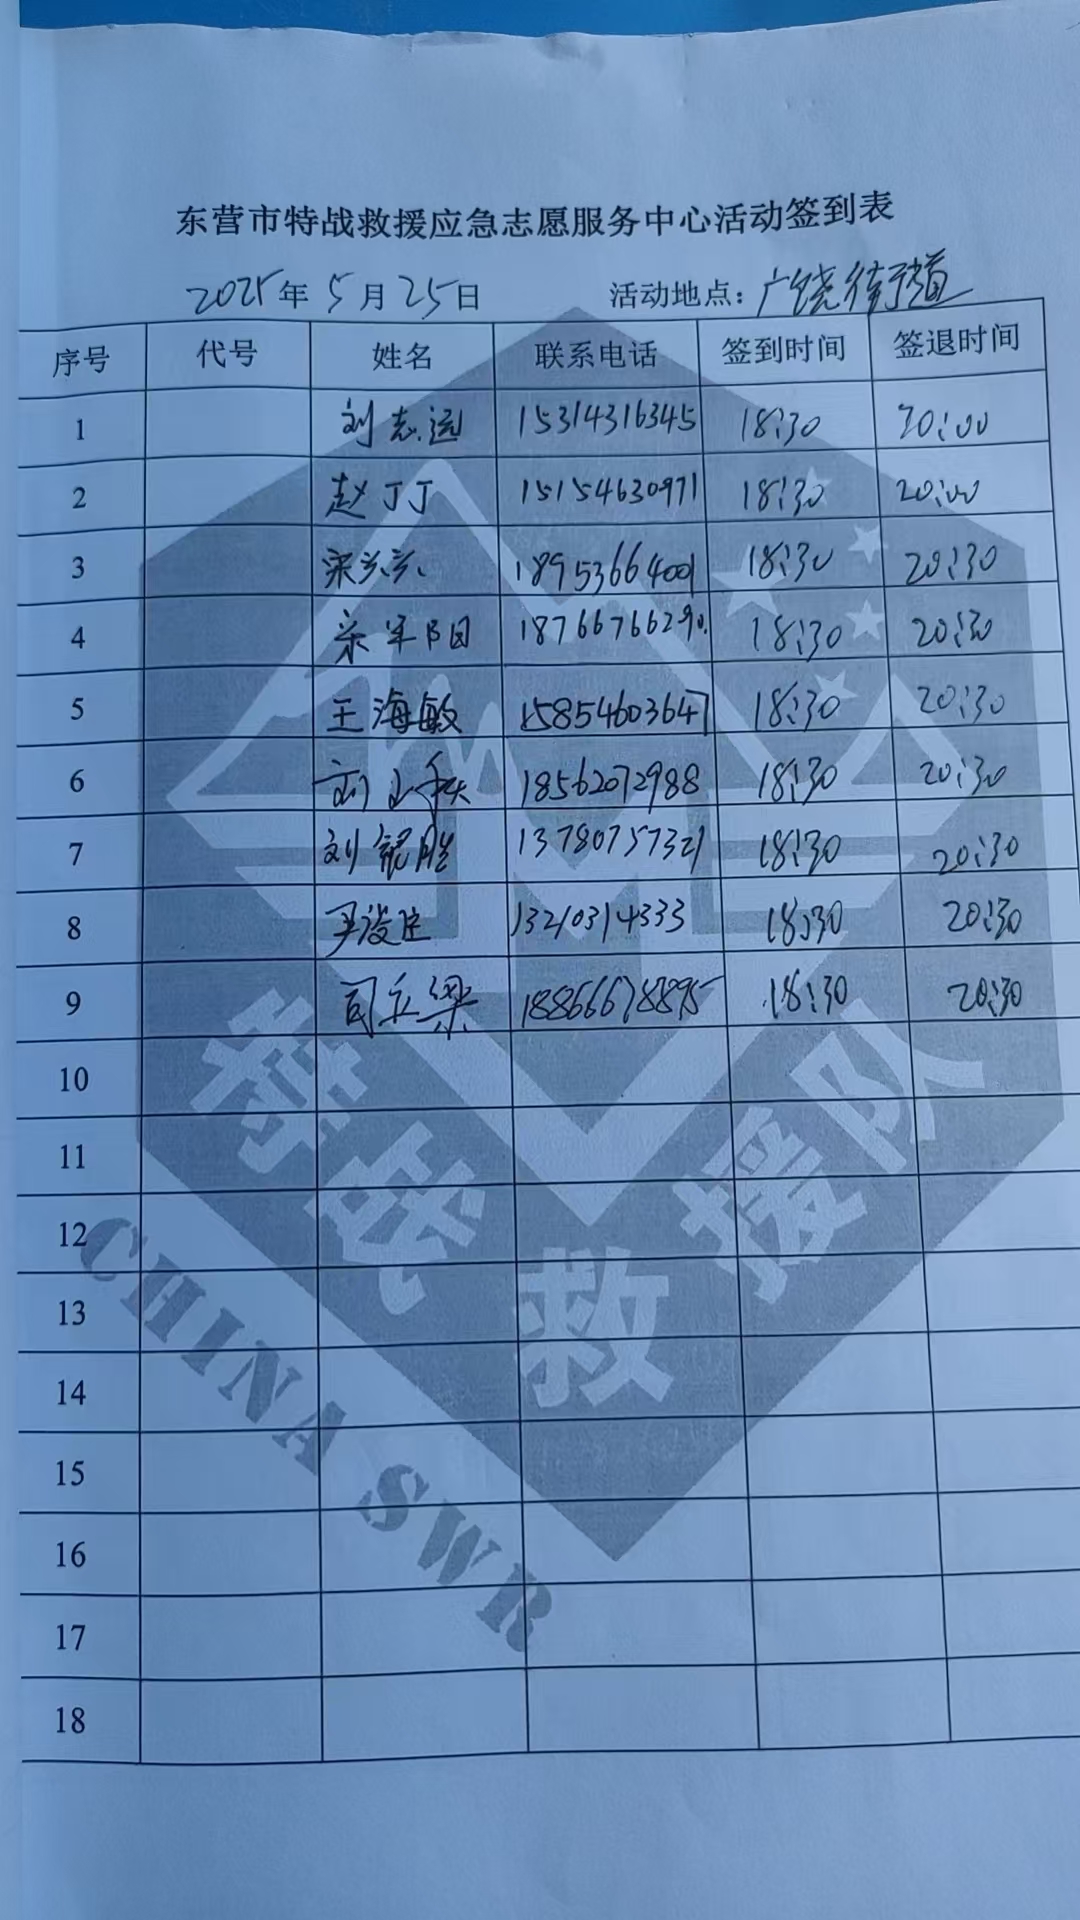 东营市特战救援应急志愿服务中心活动签到表
2025年5月25日 活动地点：广饶街道
序号 代号 姓名 联系电话 签到时间 签退时间
1 刘志远 15314316345 18:30 20:00
2 赵丁丁 15154630971 18:30 20:00
3 宋兴兴 18953664001 18:30 20:30
4 宋军阳 18766766290. 18:30 20:30
5 王海敏 15854603647 18:30 20:30
6 刘 18562072988 18:30 20:30
7 刘 胜 13780757321 18:30 20:30
8 13210314333 18:30 20:30
9 司立梁 18866678895 18:30 20:30
10
11
12
13
14
15
16
17
18
特战救援队
CHINA SWR